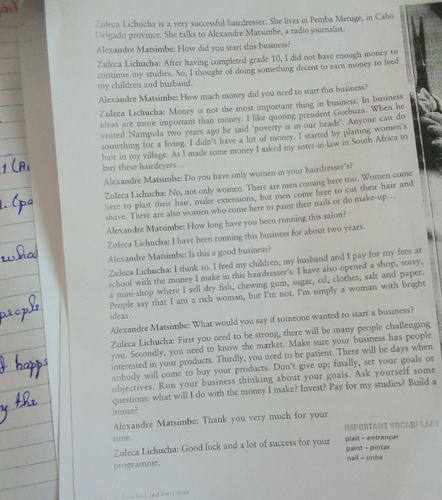 Zuleca Lichucha is a very successful hairdresser. She lives in Pemba Metuge, in Cabo
Delgado province. She talks to Alexandre Matsimbe, a radio journalist.
Alexandre Matsimbe: How did you start this business?
Zuleca Lichucha: After having completed grade 10, I did not have enough money to
continue my studies. So, I thought of doing something decent to earn money to feed
my children and husband.
Alexandre Matsimbe: How much money did you need to start this business?
Zuleca Lichucha: Money is not the most important thing in business. In business
ideas are more important than money. I like quoting president Guebuza. When he
visited Nampula two years ago he said 'poverty is in our heads'. Anyone can do
something for a living. I didn't have a lot of money. I started by plaiting women's
hair in my village. As I made some money I asked my sister-in-law in South Africa to
buy these hairdryers...
Alexandre Matsimbe: Do you have only women in your hairdresser's?
Zuleca Lichucha: No, not only women. There are men coming here too. Women come
here to plait their hair, make extensions, but men come here to cut their hair and
shave. There are also women who come here to paint their nails or do make-up...
Alexandre Matsimbe: How long have you been running this salon?
Zuleca Lichucha: I have been running this business for about two years.
Alexandre Matsimbe: Is this a good business?
Zuleca Lichucha: I think so. I feed my children, my husband and I pay for my fees at
school with the money I make in this hairdresser's. I have also opened a shop, sorry,
a mini-shop where I sell dry fish, chewing gum, sugar, oil, clothes, salt and paper.
People say that I am a rich woman, but I'm not. I'm simply a woman with bright
ideas...
Alexandre Matsimbe: What would you say if someone wanted to start a business?
Zuleca Lichucha: First you need to be strong, there will be many people challenging
you. Secondly, you need to know the market. Make sure your business has people
interested in your products. Thirdly, you need to be patient. There will be days when
nobody will come to buy your products. Don't give up; finally, set your goals or
objectives. Run your business thinking about your goals. Ask yourself some
questions: what will I do with the money I make? Invest? Pay for my studies? Build a
house?
Alexandre Matsimbe: Thank you very much for your
time.
Zuleca Lichucha: Good luck and a lot of success for your
programme.
IMPORTANT VOCABULARY
plait - entrançar
paint - pintar
nail - unha
hundred and forty-four
people
the